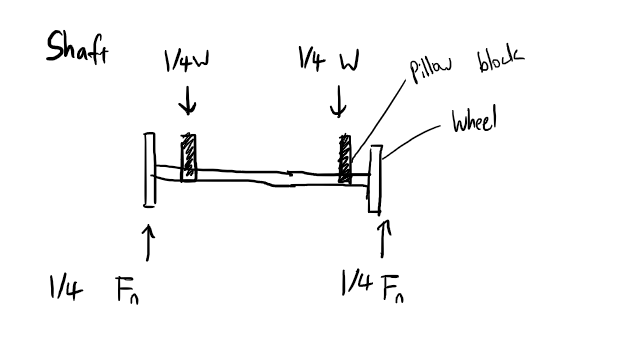 Shaft
1/4 W
1/4 W
Pillow block
Wheel
1/4 Fn
1/4 Fn